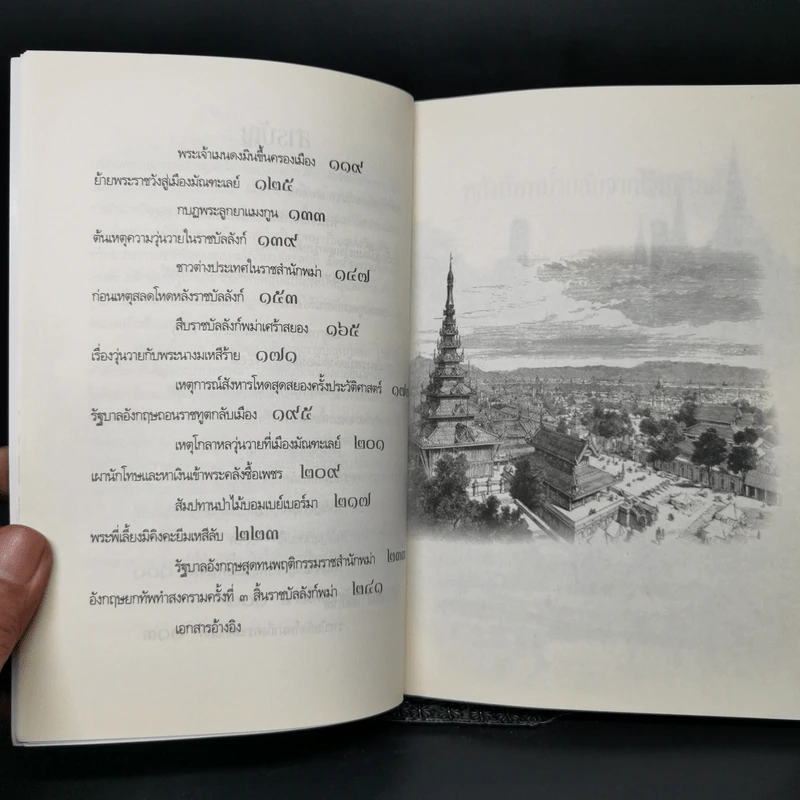 พระเจ้าเมนดงมินขึ้นครองเมือง ๑๑๙
ย้ายพระราชวังสู่เมืองมัณฑะเลย์ ๑๒๕
กบฏพระลูกยาแมงกูน ๑๓๓
ต้นเหตุความวุ่นวายในราชบัลลังก์ ๑๓๙
ชาวต่างประเทศในราชสำนักพม่า ๑๔๗
ก่อนเหตุสลดโหดหลังราชบัลลังก์ ๑๕๓
สืบราชบัลลังก์พม่าเศร้าสยอง ๑๖๕
เรื่องวุ่นวายกับพระนางมเหสีร้าย ๑๗๑
เหตุการณ์สังหารโหดสุดสยองครั้งประวัติศาสตร์
รัฐบาลอังกฤษถอนราชทูตกลับเมือง ๑๙๕
เหตุโกลาหลวุ่นวายที่เมืองมัณฑะเลย์ ๒๐๑
เผานักโทษและหาเงินเข้าพระคลังซื้อเพชร ๒๐๙
สัมปทานป่าไม้บอมเบย์เบอร์มา ๒๑๗
พระพี่เลี้ยงมิคิงคะยีมเหสีลับ ๒๒๓
รัฐบาลอังกฤษสุดทนพฤติกรรมราชสำนักพม่า ๒๓๓
อังกฤษยกทัพทำสงครามครั้งที่ ๓ สิ้นราชบัลลังก์พม่า ๒๔๑
เอกสารอ้างอิง
สารบัญ